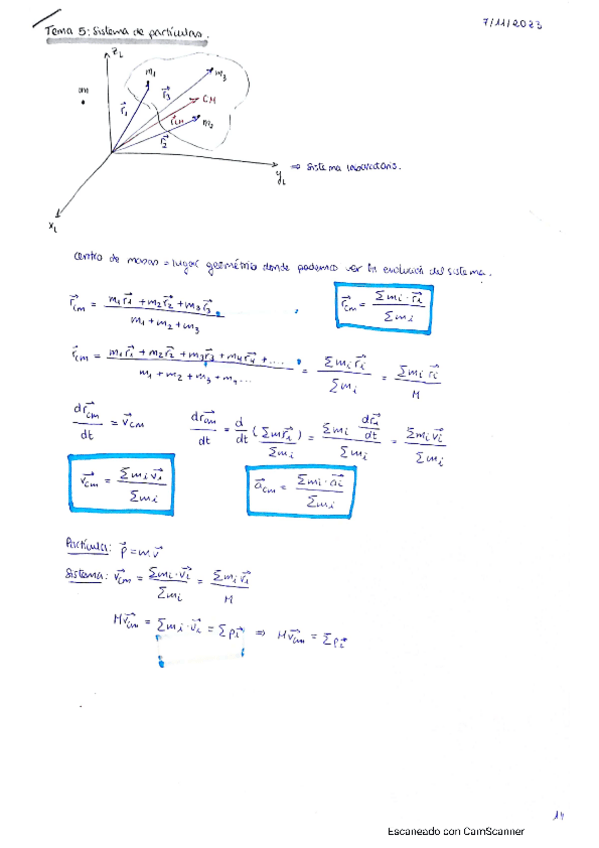 7/11/2023
Tema 5: Sistema de partículas.
z_L
m_1
m_3
r_3
CM
r_1
r_cm
m_2
r_2
y_L
⇒ Sistema laboratorio.
x_L
Centro de masas = lugar geométrico donde podemos ver la evolución del sistema.
\vec{r}_{cm} = \frac{m_1\vec{r_1} + m_2\vec{r_2} + m_3\vec{r_3}}{m_1 + m_2 + m_3}
\vec{r}_{cm} = \frac{\sum m_i \cdot \vec{r_i}}{\sum m_i}
\vec{r}_{cm} = \frac{m_1\vec{r_1} + m_2\vec{r_2} + m_3\vec{r_3} + m_4\vec{r_4} + ....}{m_1 + m_2 + m_3 + m_4 ...} = \frac{\sum m_i \vec{r_i}}{\sum m_i} = \frac{\sum m_i \vec{r_i}}{M}
\frac{d\vec{r}_{cm}}{dt} = \vec{v}_{cm}
\frac{d\vec{r}_{cm}}{dt} = \frac{d}{dt} \frac{(\sum m\vec{r_i})}{\sum m_i} = \frac{\sum m_i \frac{d\vec{r_i}}{dt}}{\sum m_i} = \frac{\sum m_i \vec{v_i}}{\sum m_i}
\vec{v}_{cm} = \frac{\sum m_i \vec{v_i}}{\sum m_i}
\vec{a}_{cm} = \frac{\sum m_i \cdot \vec{a_i}}{\sum m_i}
Partícula: \vec{p} = m.\vec{v}
Sistema: \vec{v}_{cm} = \frac{\sum m_i \cdot \vec{v_i}}{\sum m_i} = \frac{\sum m_i \vec{v_i}}{M}
M\vec{v}_{cm} = \sum m_i \cdot \vec{v_i} = \sum \vec{p_i} ⇒ M\vec{v}_{cm} = \sum \vec{p_i}
14
Escaneado con CamScanner